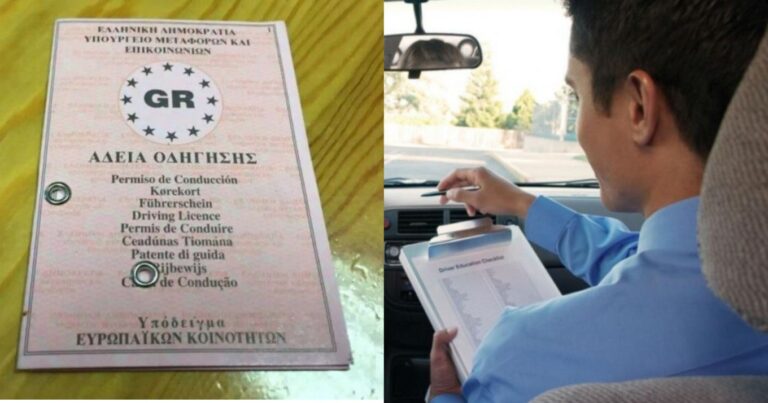 ΕΛΛΗΝΙΚΗ ΔΗΜΟΚΡΑΤΙΑ
1
ΥΠΟΥΡΓΕΙΟ ΜΕΤΑΦΟΡΩΝ ΚΑΙ
ΕΠΙΚΟΙΝΩΝΙΩΝ
GR
ΑΔΕΙΑ ΟΔΗΓΗΣΗΣ
Permiso de Conducción
Kørekort
Führerschein
Driving Licence
Permis de Conduire
Ceadúnas Tiomána
Patente di guida
ijbewijs
C de Condução
Υπόδειγμα
ΕΥΡΩΠΑΪΚΩΝ ΚΟΙΝΟΤΗΤΩΝ
Driver Education Checklist